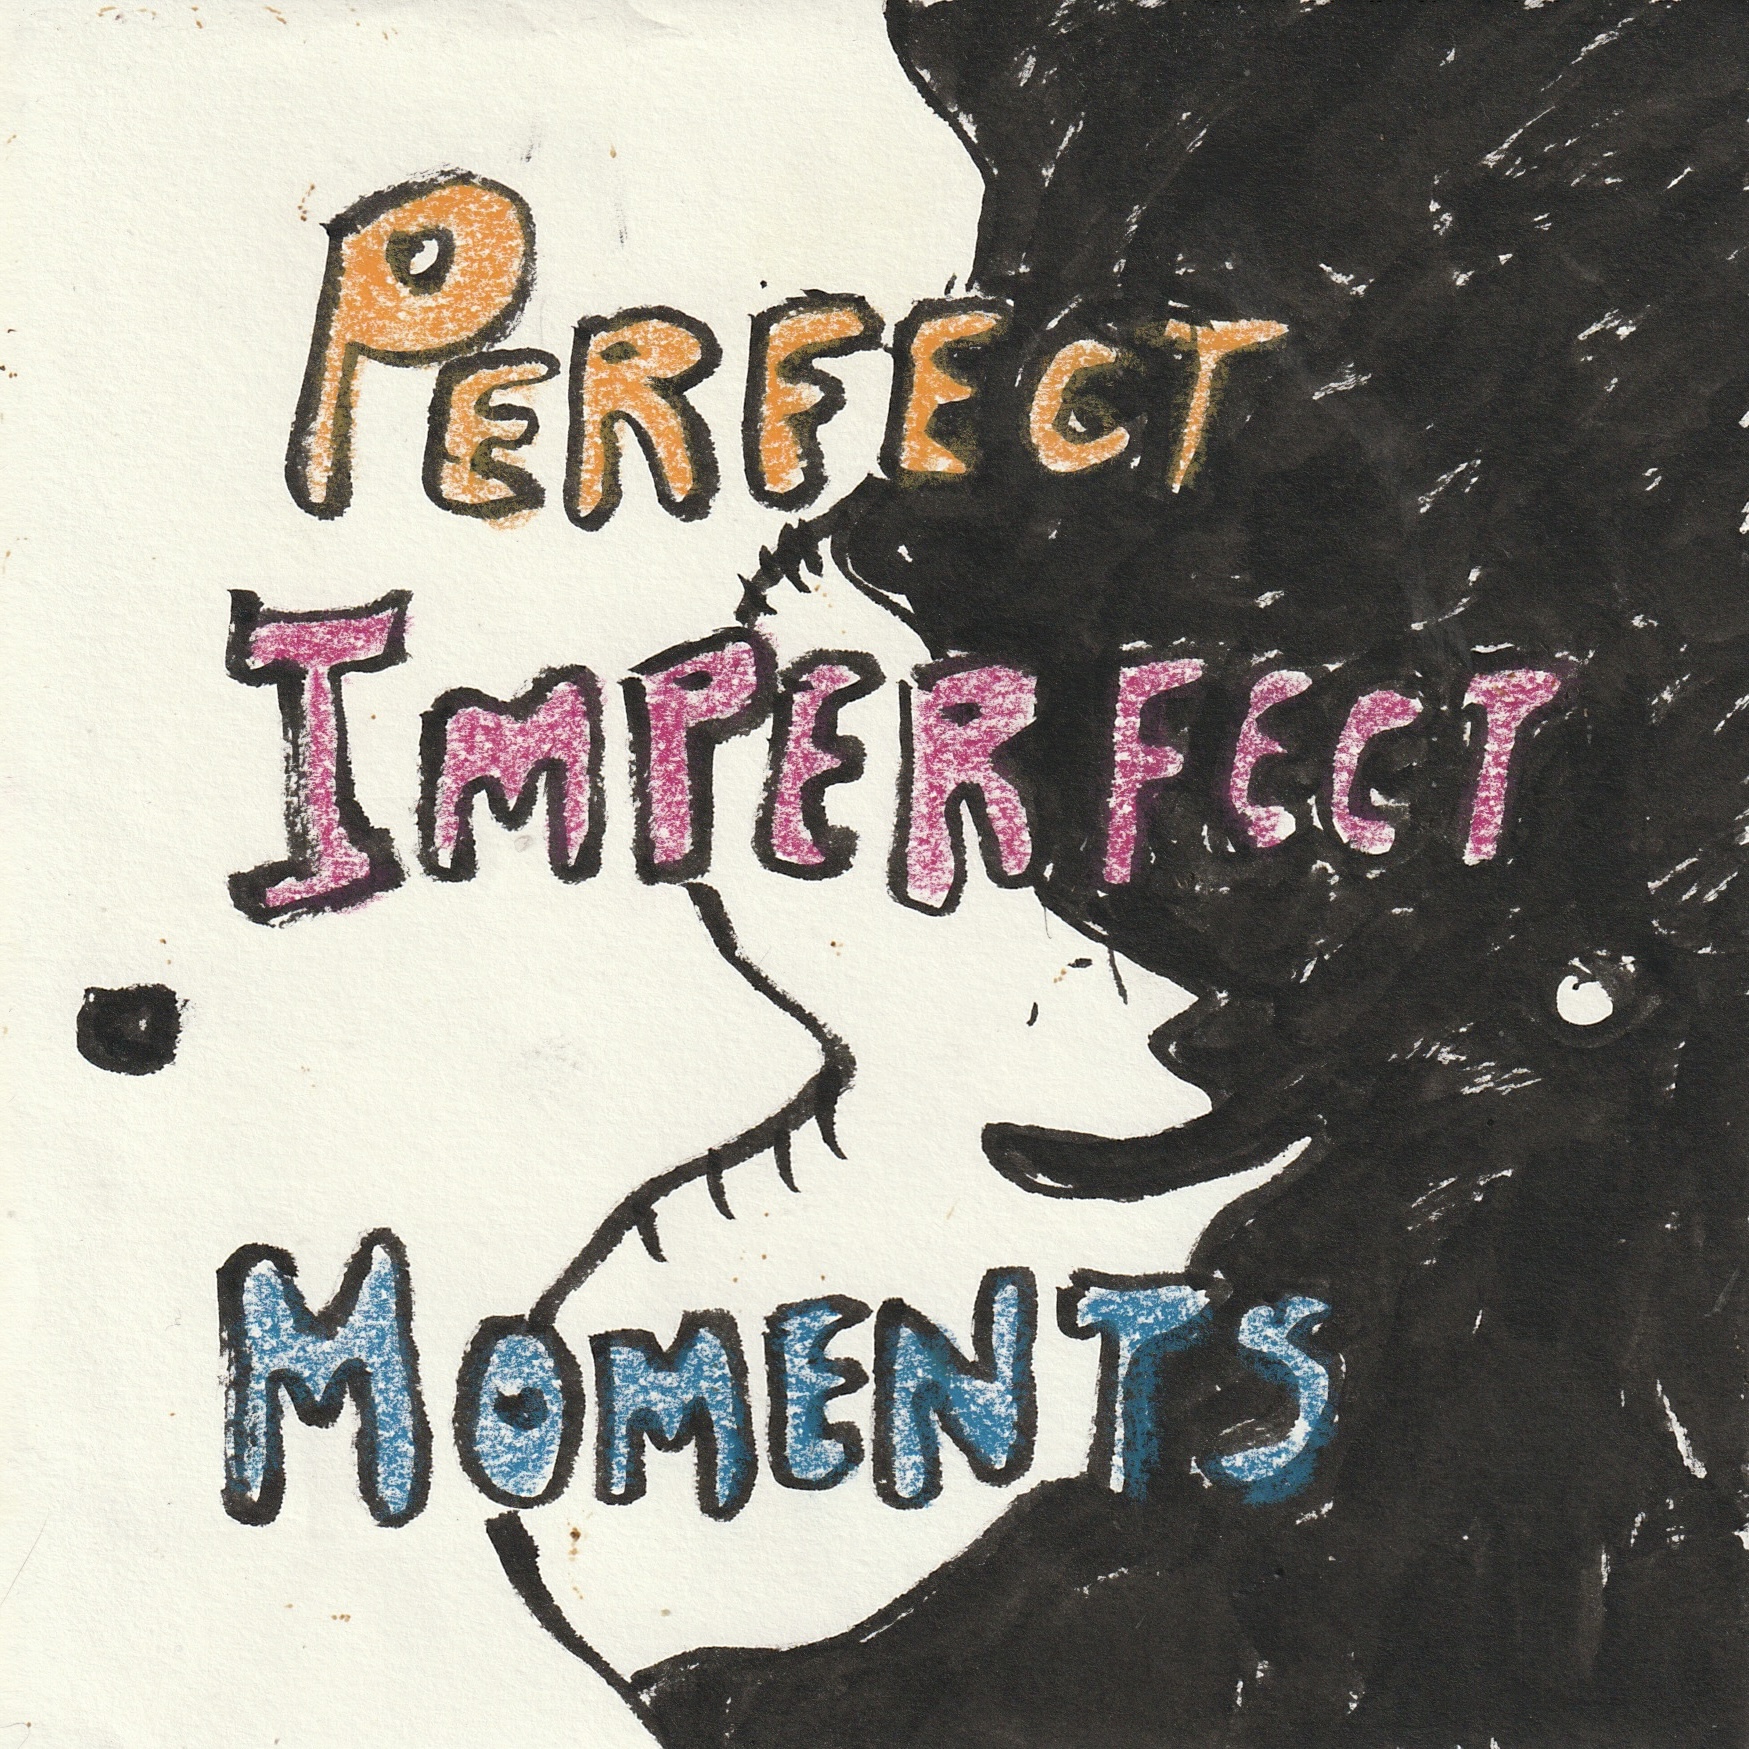 PERFECT
IMPERFECT
MOMENTS